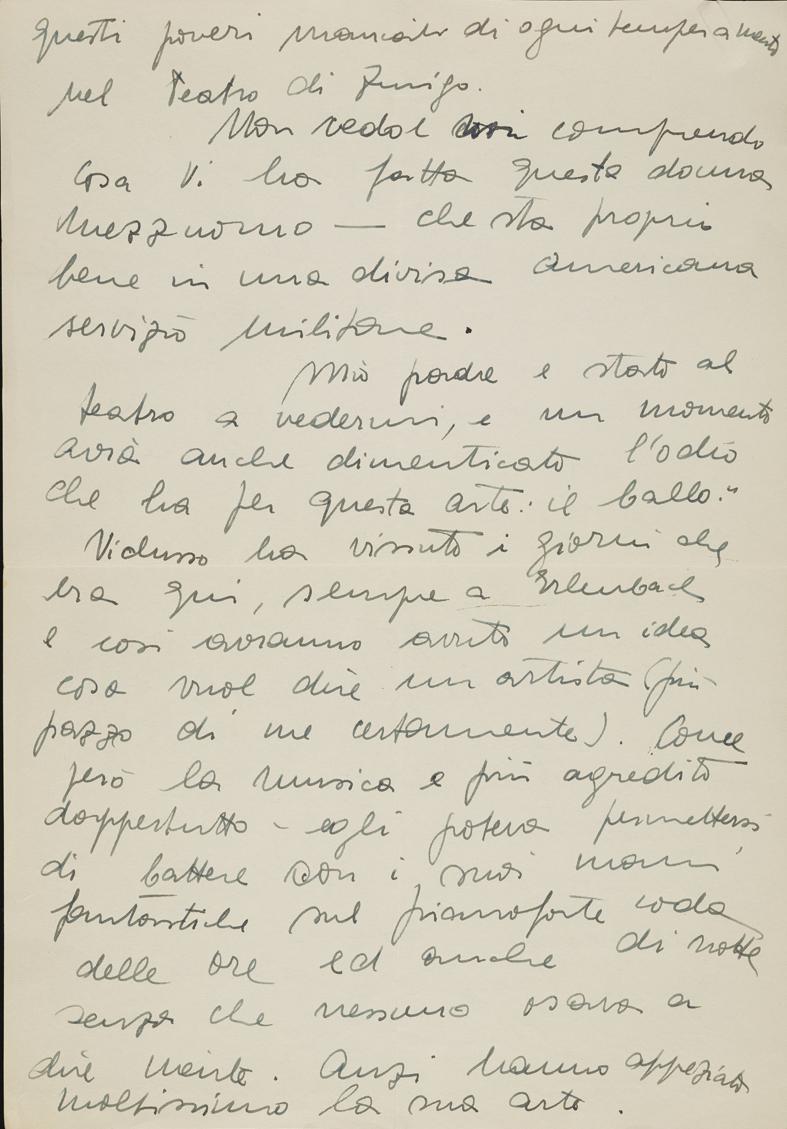 questi poveri mancati di ogni temperamento
nel Teatro di Zurigo.
Non vedol comprendo
cosa Vi ha fatta questa donna
mezzuomo — che sta proprio
bene in una divisa americana
servizio militare.
Mio padre e stato al
teatro a vedermi, e un momento
avrà anche dimenticato l'odio
che ha per questa arte: il ballo."
Vidusso ha vissuto i giorni che
era qui, sempre a Erlenbach
e cosi avranno avuto un idea
cosa vuol dire un artista (più
pazzo di me certamente). Come
però la musica e più agredito
dappertutto - egli poteva permettersi
di battere con i suoi mani
fantastiche sul pianoforte coda
delle ore ed anche di notte
senza che nessuno osava a
dire niente. Anzi hanno appeziato
moltissimo la sua arte.